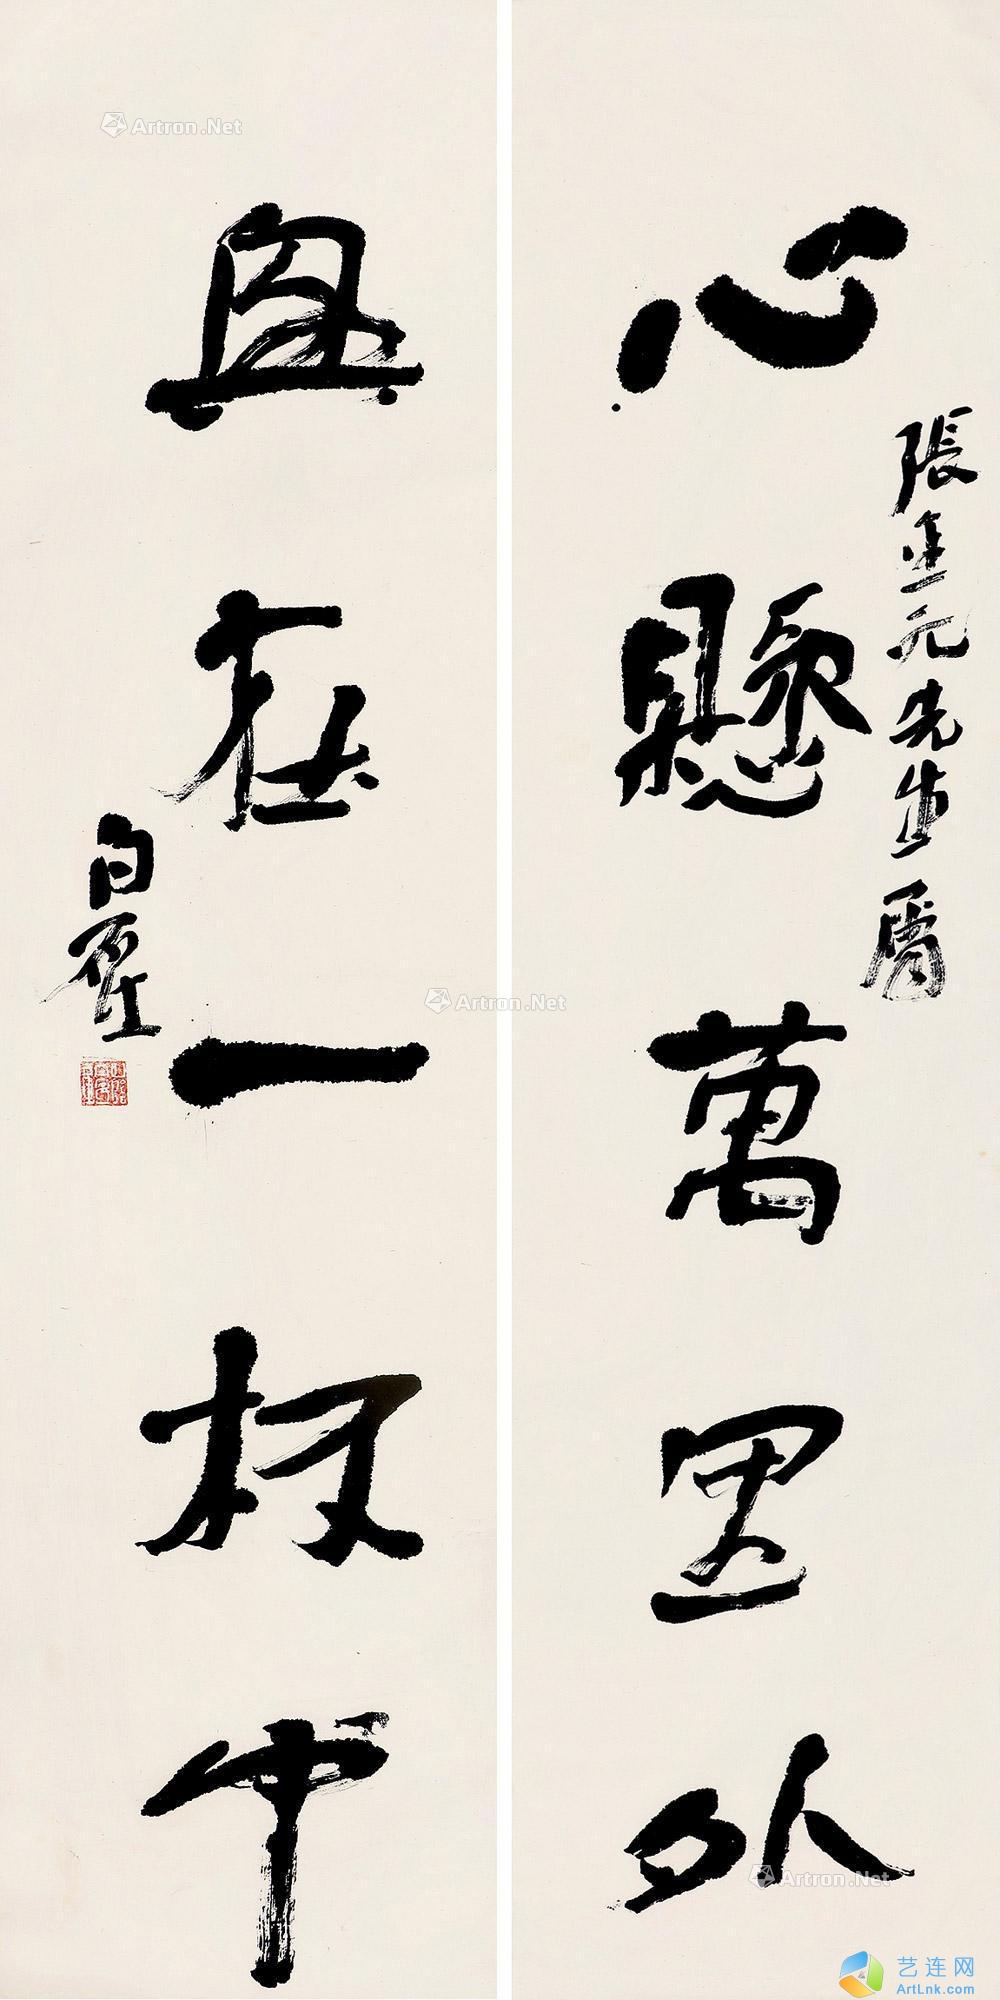 心懸萬里外
張金元先生屬
興在一杯中
白砥
Artron.Net
Artron.Net
Artron.Net
艺连网
ArtLnk.com